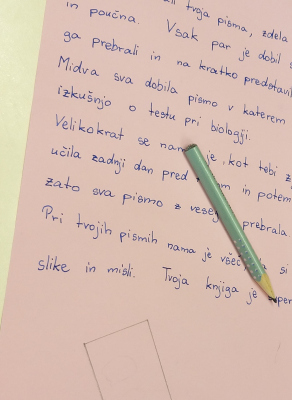 tvoja pisma, zdela
in poučna. Vsak par je dobil
ga prebrali in na kratko predstavil
Midva sva dobila pismo v katerem
izkušnjo o testu pri biologiji.
Velikokrat se nam je, kot tebi z
učila zadnji dan pred in potem
zato sva pismo z prebrala
Pri tvojih pismih nama je všeč si
slike in misli. Tvoja knjiga je